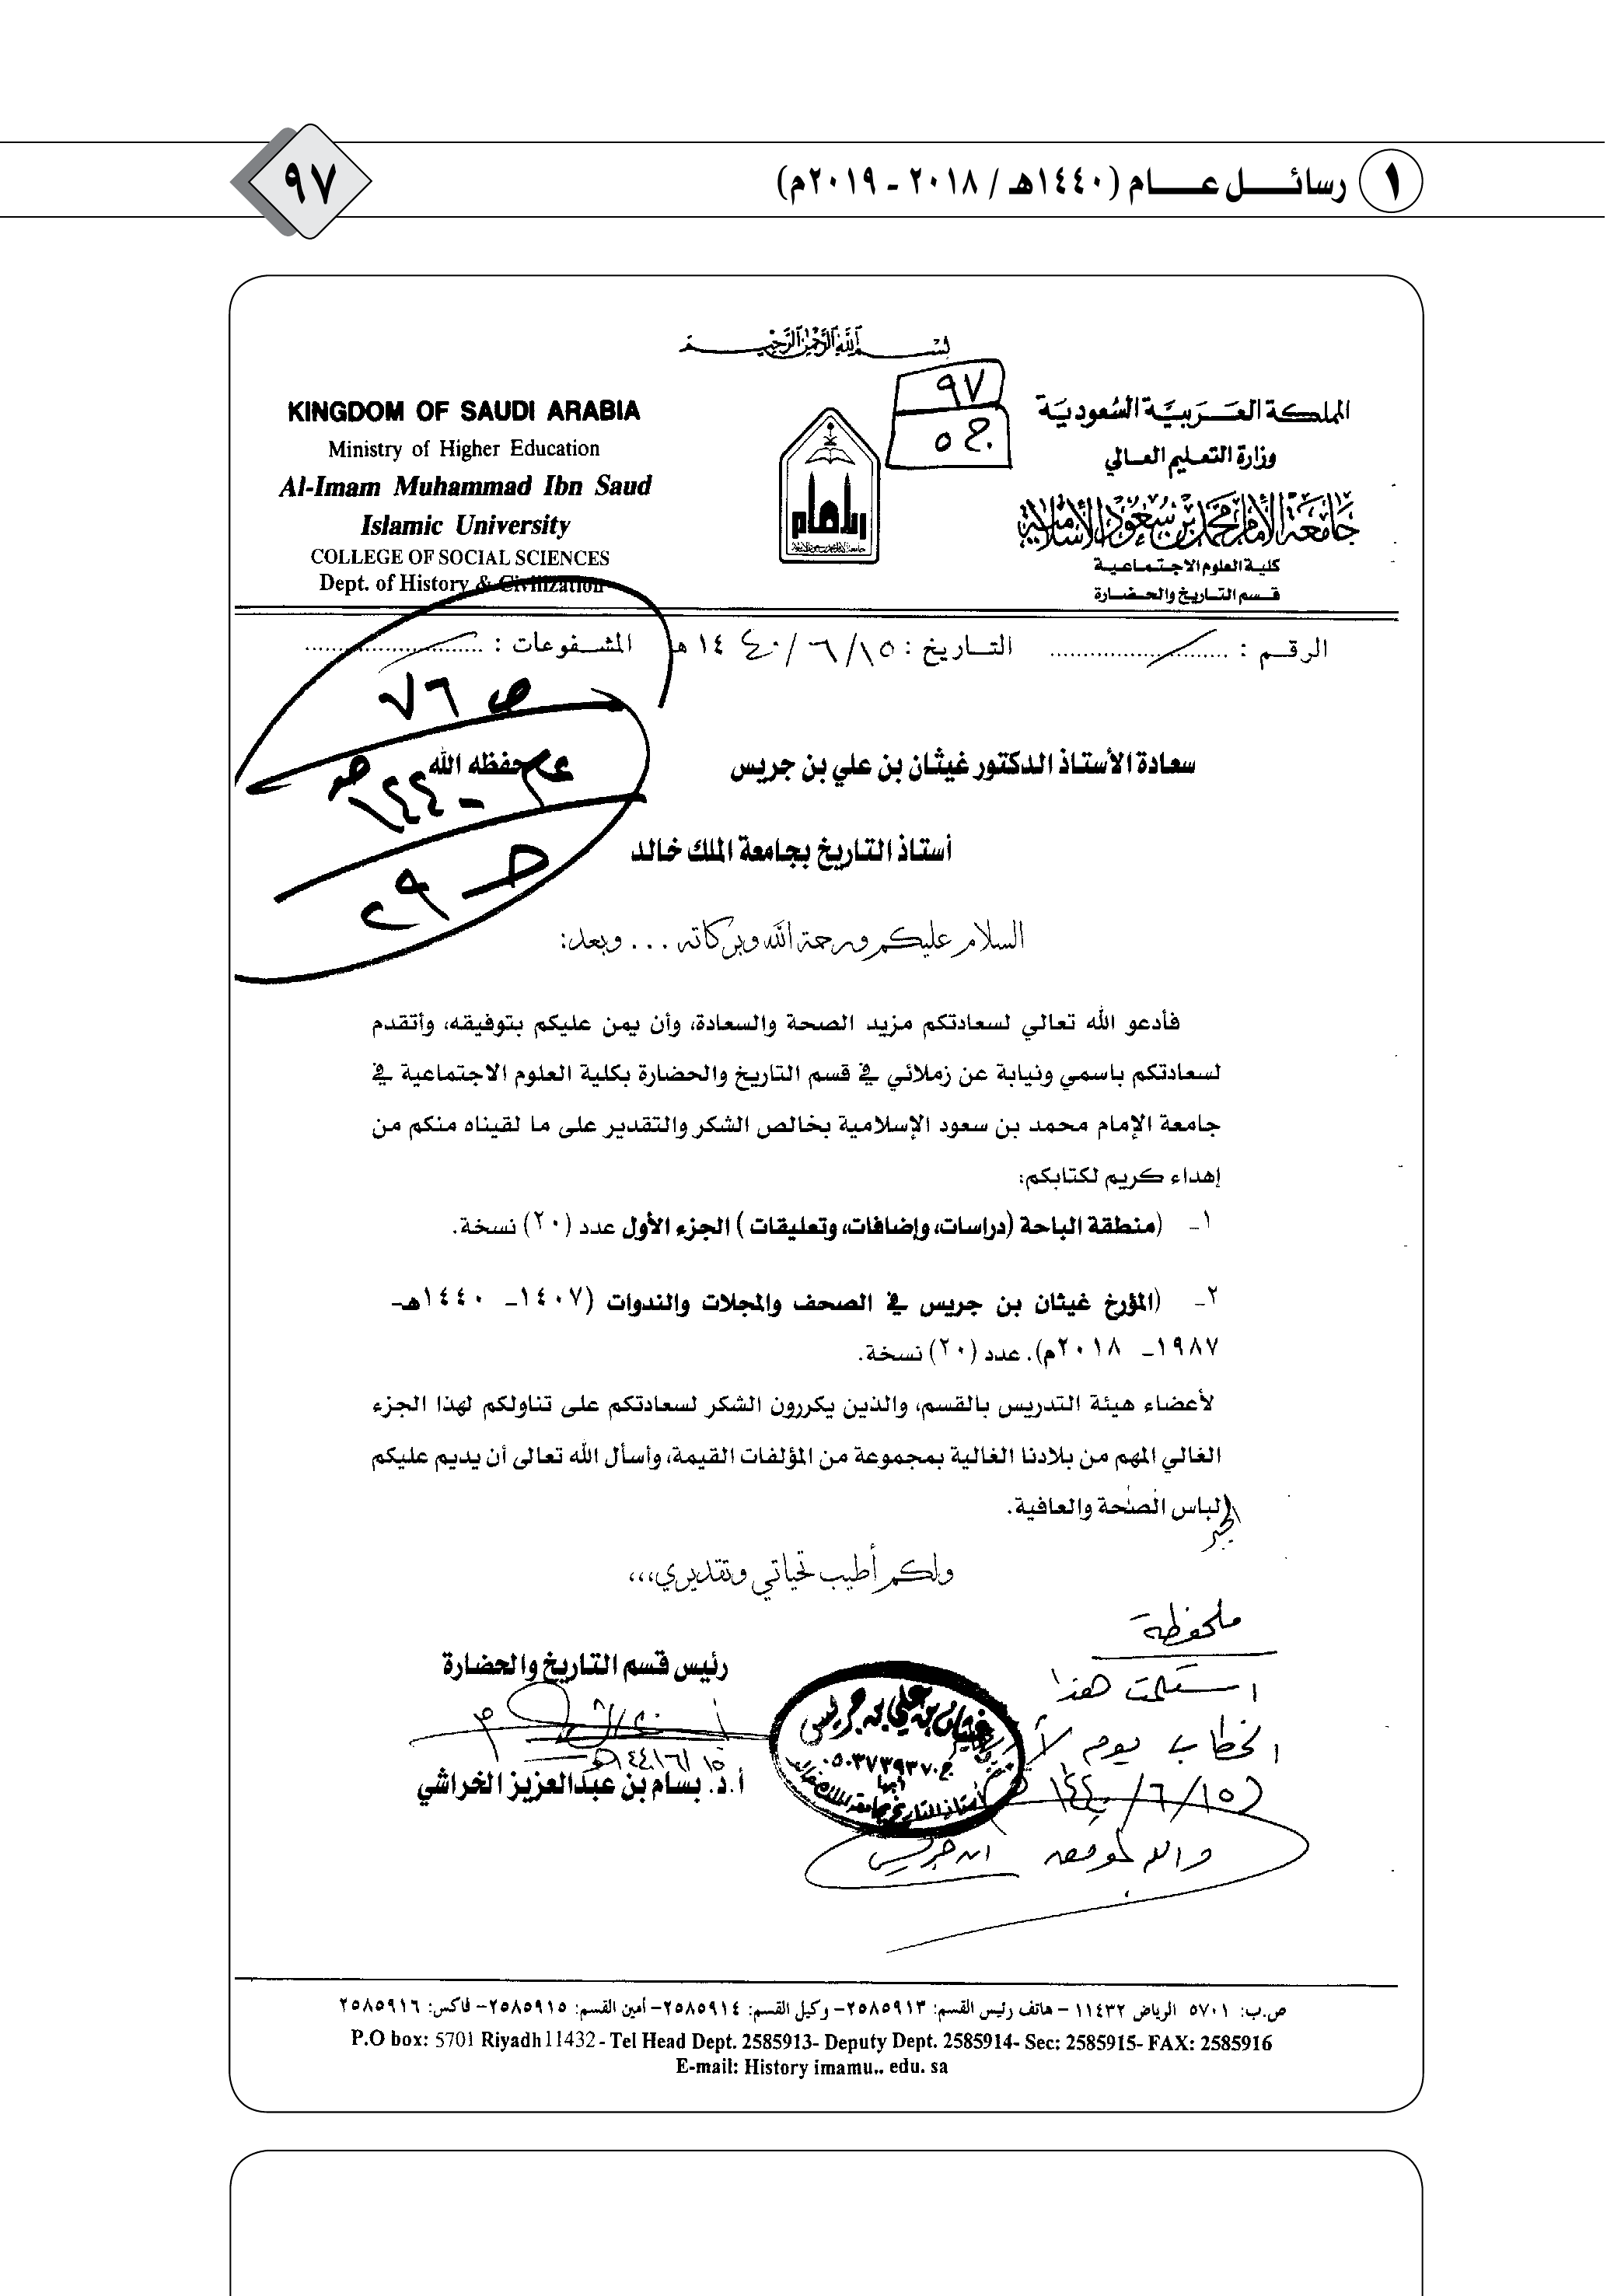 ١ رسائل عام (١٤٤٠هـ / ٢٠١٨ - ٢٠١٩م)
٩٧
بسم الله الرحمن الرحيم
٩٧
ج ٥
المملكة العربية السعودية
وزارة التعليم العالي
جامعة الإمام محمد بن سعود الإسلامية
كلية العلوم الاجتماعية
قسم التاريخ والحضارة
KINGDOM OF SAUDI ARABIA
Ministry of Higher Education
Al-Imam Muhammad Ibn Saud
Islamic University
COLLEGE OF SOCIAL SCIENCES
Dept. of History & Civilization
الرقم : التاريخ : ١٥/ ٦/ ١٤٤٠هـ المشفوعات :
ص ٧٦
سعادة الأستاذ الدكتور غيثان بن علي بن جريس حفظه الله
عام ١٤٤٠هـ
أستاذ التاريخ بجامعة الملك خالد
السلام عليكم ورحمة الله وبركاته ... وبعد:
فأدعو الله تعالي لسعادتكم مزيد الصحة والسعادة، وأن يمن عليكم بتوفيقه، وأتقدم
لسعادتكم باسمي ونيابة عن زملائي في قسم التاريخ والحضارة بكلية العلوم الاجتماعية في
جامعة الإمام محمد بن سعود الإسلامية بخالص الشكر والتقدير على ما لقيناه منكم من
إهداء كريم لكتابكم:
١- (منطقة الباحة (دراسات، وإضافات، وتعليقات ) الجزء الأول عدد (٢٠) نسخة.
٢- (المؤرخ غيثان بن جريس في الصحف والمجلات والندوات (١٤٠٧- ١٤٤٠هـ-
١٩٨٧- ٢٠١٨م). عدد (٢٠) نسخة.
لأعضاء هيئة التدريس بالقسم، والذين يكررون الشكر لسعادتكم على تناولكم لهذا الجزء
الغالي المهم من بلادنا الغالية بمجموعة من المؤلفات القيمة، وأسأل الله تعالى أن يديم عليكم
لباس الصحة والعافية.
ولكم أطيب تحياتي وتقديري،،،
رئيس قسم التاريخ والحضارة
١٥/٦/١٤٤٠هـ
أ.د. بسام بن عبدالعزيز الخراشي
ملحوظة
استلمت هذا
الخطاب يوم
١٥/٦/١٤٤٠
والله الموفق ابن جريس
غيثان بن علي بن جريس
ج.٠٥٠٣٧٣٩٣٧٠
أبها
أستاذ التاريخ بجامعة الملك خالد
ص.ب: ٥٧٠١ الرياض ١١٤٣٢ - هاتف رئيس القسم: ٢٥٨٥٩١٣- وكيل القسم: ٢٥٨٥٩١٤- أمين القسم: ٢٥٨٥٩١٥- فاكس: ٢٥٨٥٩١٦
P.O box: 5701 Riyadh 11432 - Tel Head Dept. 2585913- Deputy Dept. 2585914- Sec: 2585915- FAX: 2585916
E-mail: History imamu.. edu. sa